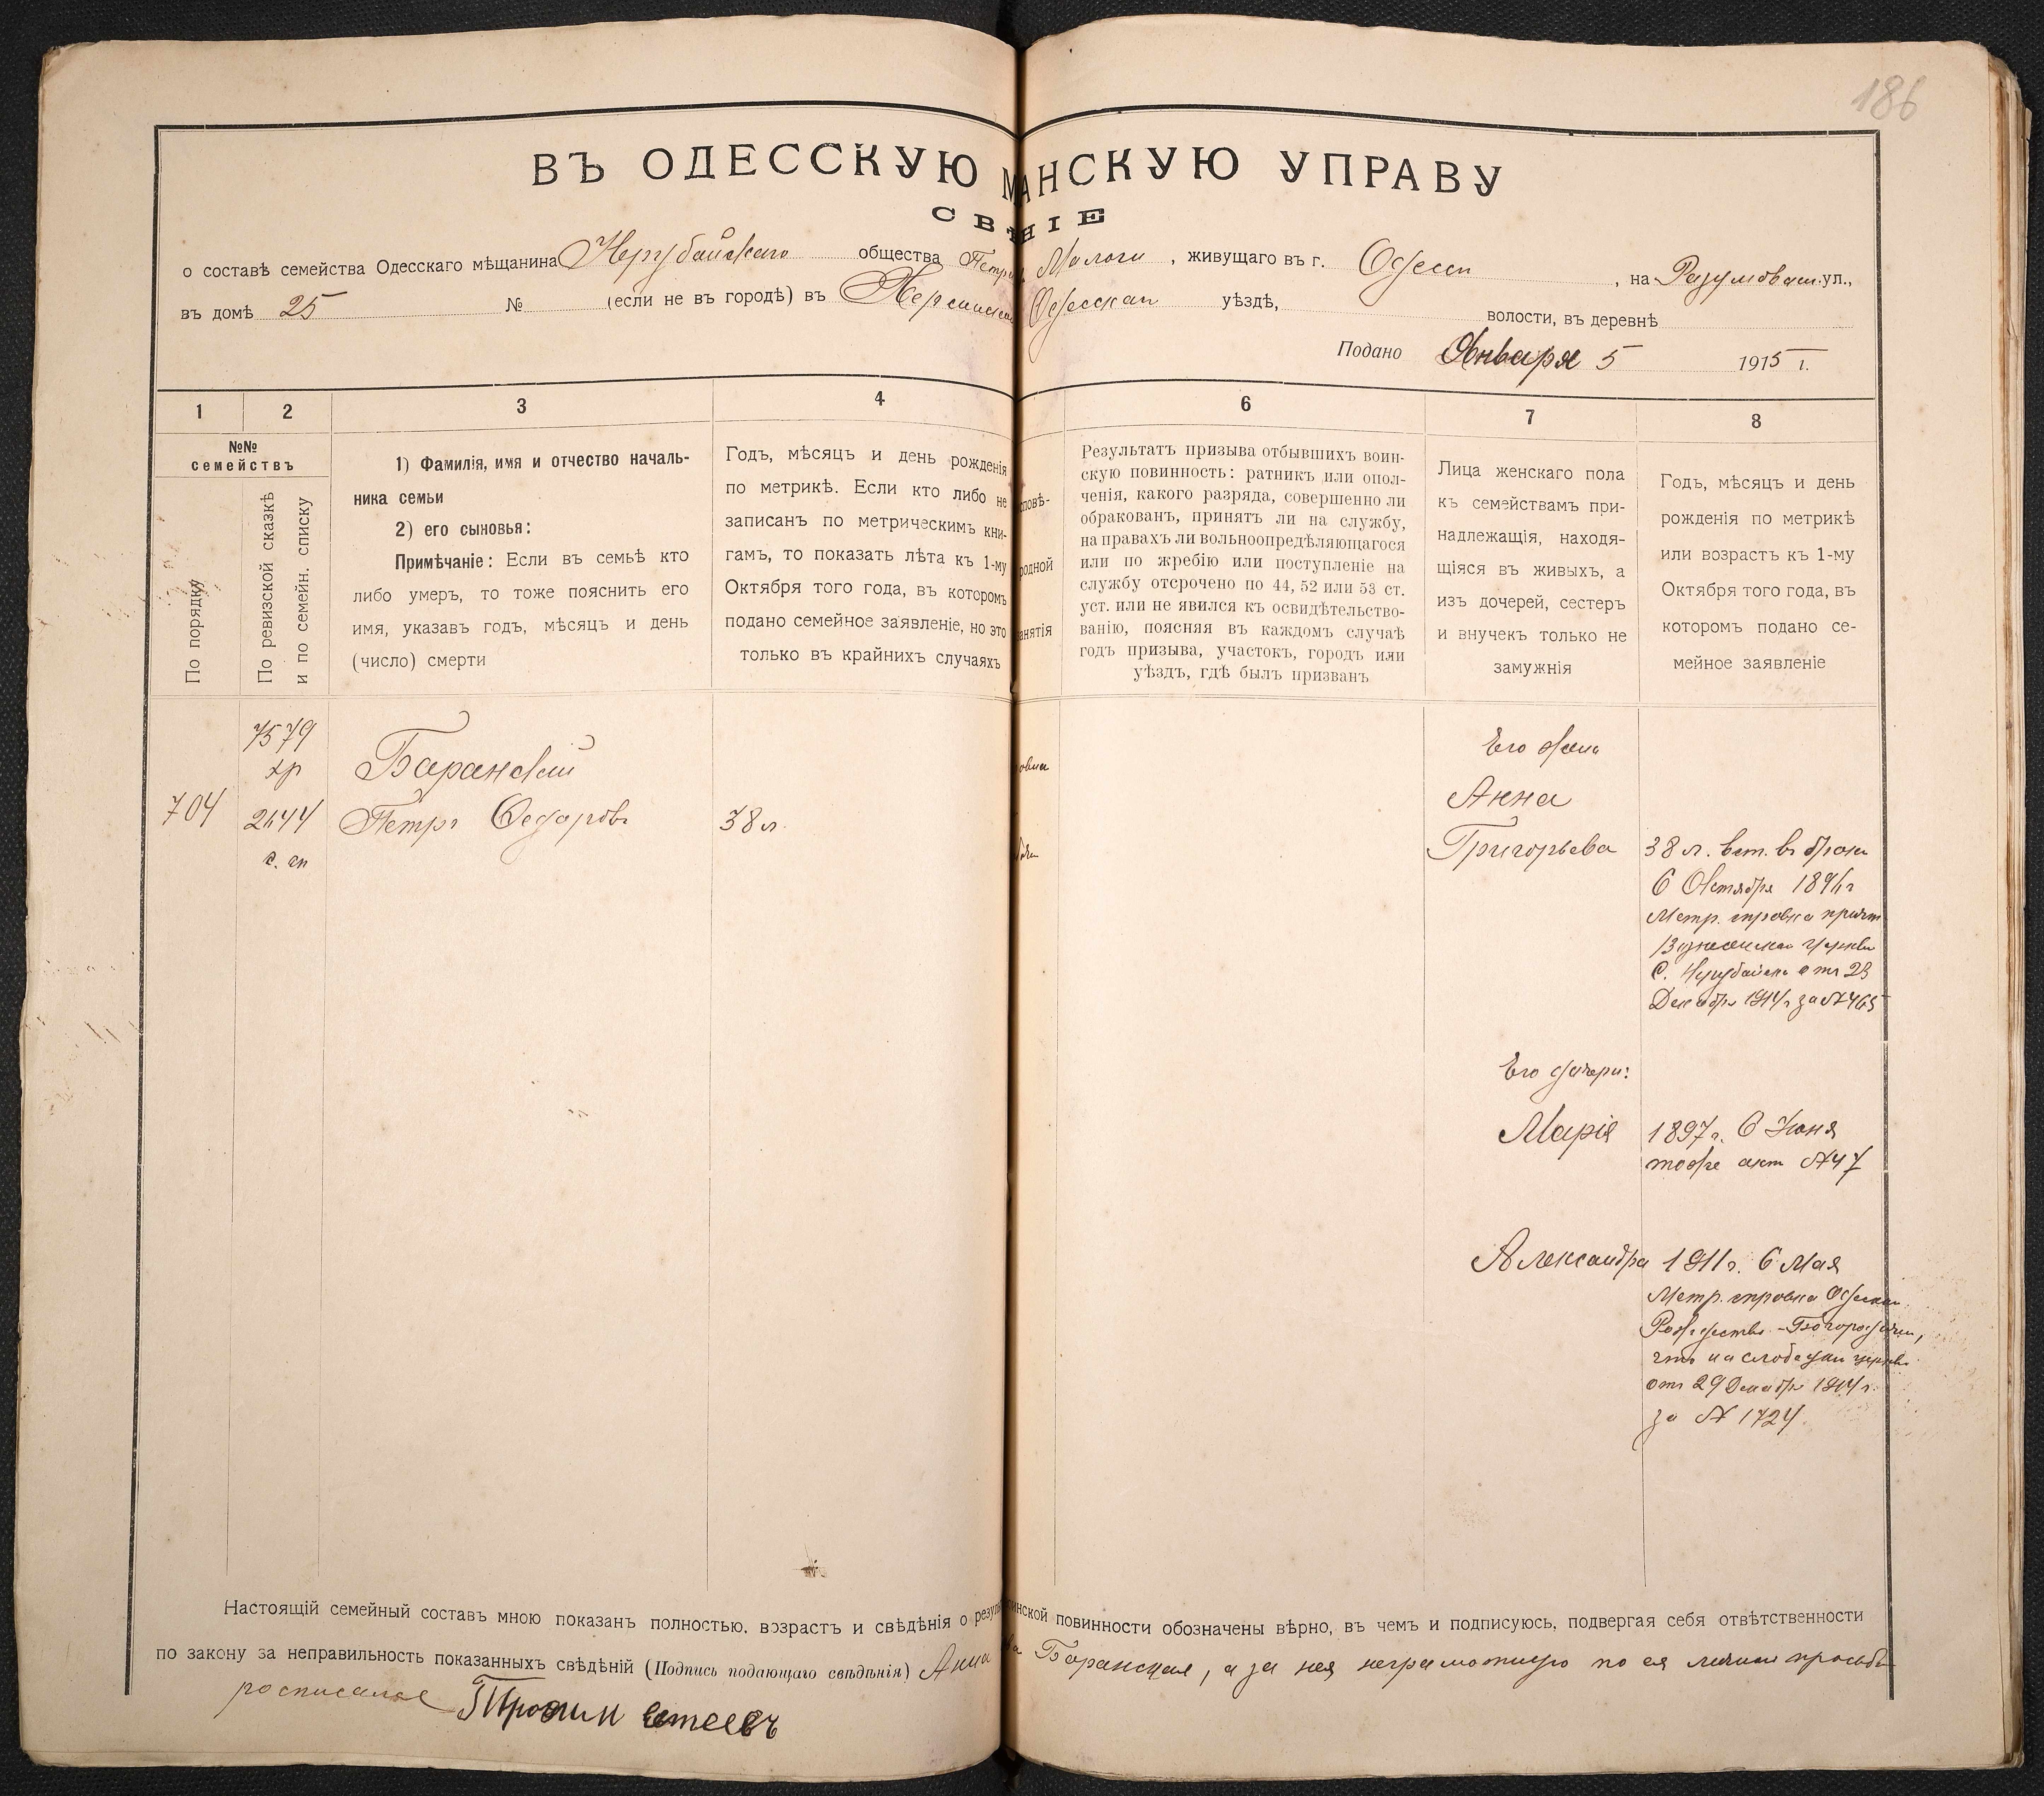 186
ВЪ ОДЕССКУЮ М АНСКУЮ УПРАВУ
СВѢ НІЕ
о составѣ семейства Одесскаго мѣщанина Нерубайскаго общества Петр Малого, живущаго въ г. Одессы, на Разумовск. ул.,
въ домѣ 25 № (если не въ городѣ) въ Херсонской Одесскаго уѣздѣ, волости, въ деревнѣ
Подано Января 5 1915 г.
1 2 3 4 6 7 8
№№
семействъ
По порядку
По ревизской сказкѣ
и по семейн. списку
1) Фамилія, имя и отчество началь-
ника семьи
2) его сыновья:
Примѣчаніе: Если въ семьѣ кто
либо умеръ, то тоже пояснить его
имя, указавъ годъ, мѣсяцъ и день
(число) смерти
Годъ, мѣсяцъ и день рожденія
по метрикѣ. Если кто либо не
записанъ по метрическимъ кни-
гамъ, то показать лѣта къ 1-му
Октября того года, въ которомъ
подано семейное заявленіе, но это
только въ крайнихъ случаяхъ
повѣ-
родной
анятія
Результатъ призыва отбывшихъ воин-
скую повинность: ратникъ или опол-
ченія, какого разряда, совершенно ли
обракованъ, принятъ ли на службу,
на правахъ ли вольноопредѣляющагося
или по жребію или поступленіе на
службу отсрочено по 44, 52 или 53 ст.
уст. или не явился къ освидѣтельство-
ванію, поясняя въ каждомъ случаѣ
годъ призыва, участокъ, городъ или
уѣздъ, гдѣ былъ призванъ
Лица женскаго пола
къ семействамъ при-
надлежащія, находя-
щіяся въ живыхъ, а
изъ дочерей, сестеръ
и внучекъ только не
замужнія
Годъ, мѣсяцъ и день
рожденія по метрикѣ
или возрастъ къ 1-му
Октября того года, въ
которомъ подано се-
мейное заявленіе
704
7579
2144
с. сп
Баранскій
Петръ Федоровъ
38 л.
Его жена
Анна
Григорьева
38 л. вст. въ бракъ
6 Октября 1896 г
Метр. справка причт
Вознесенской церкви
с. Нерубайска отъ 23
Декабря 1914 г за № 465
Его дочери:
Марія
1897 г. 6 Іюня
тоже акт №47
Александра
1911 г. 6 Мая
Метр. справка Одесской
Рождество-Богородичн,
что на слободкѣ церкви
отъ 29 Декабря 1914 г.
за № 1724
Настоящій семейный составъ мною показанъ полностью, возрастъ и свѣдѣнія о резуль инской повинности обозначены вѣрно, въ чемъ и подписуюсь, подвергая себя отвѣтственности
по закону за неправильность показанныхъ свѣдѣній (Подпись подающаго свѣдѣнія) Анна ва Баранская, а за нея неграмотную по ея личной просьбѣ
росписался